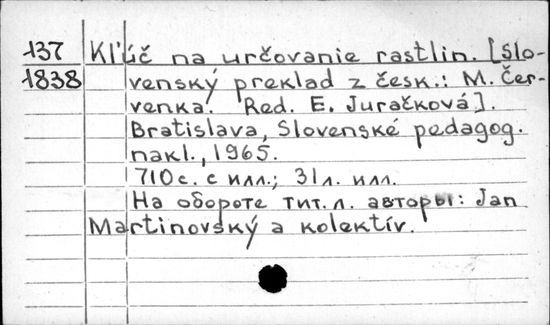 137 Kľúč na určovanie rastlín. [Slo-
1838 venský preklad z česk.: M. Čer-
venka. Red. E. Juračková].
Bratislava, Slovenské pedagog.
nakl., 1965.
710 с. с илл.; 31 л. илл.
На обороте тит. л. авторы: Jan
Martinovský a kolektív.